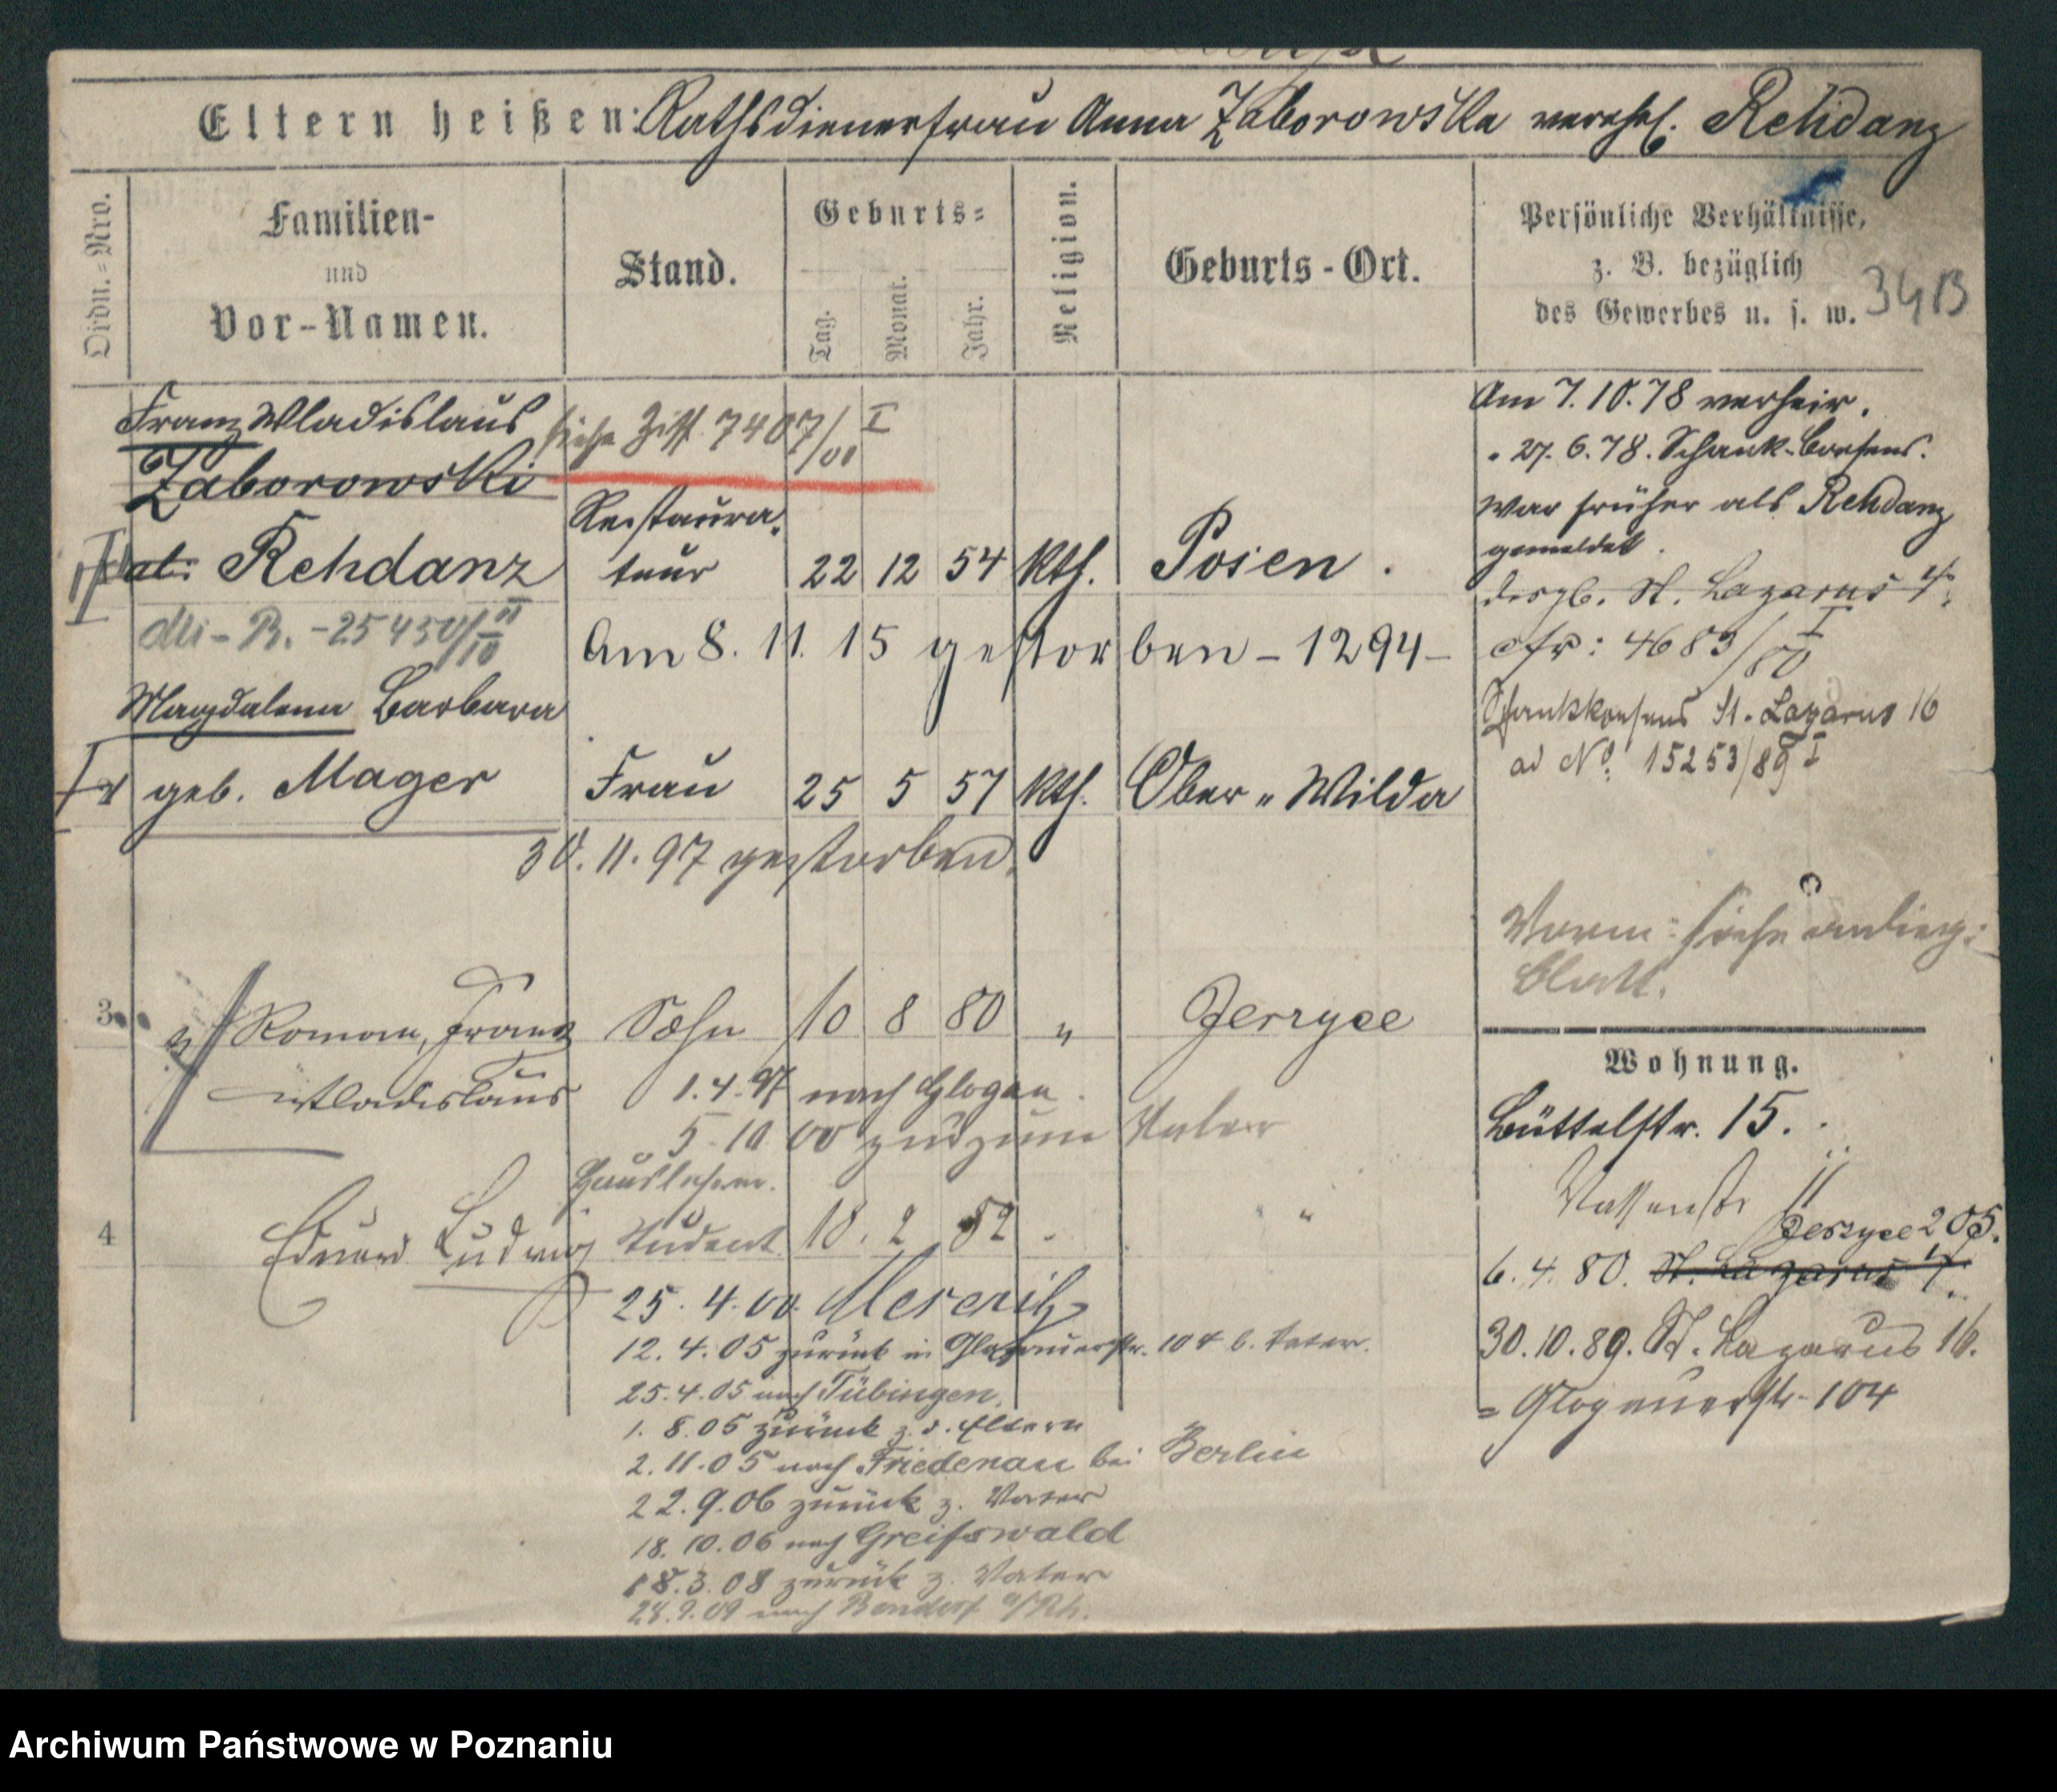 Eltern heißen: Rathsdienerfrau Anna Zaborowska verehel. Rehdanz
Ordn.=Nro.
Familien-
und
Vor-Namen.
Stand.
Geburts=
Tag.
Monat.
Jahr.
Religion.
Geburts-Ort.
Persönliche Verhältnisse,
z. B. bezüglich
des Gewerbes u. s. w.
34B
Franz Wladislaus siehe Ziff. 7407/00 I
Zaborowski
Restaura-
Rehdanz teur 22 12 54 kth. Posen.
25450/10
Am 8. 11. 15 gestorben - 1294 -
Magdalena Barbara
geb. Mager Frau 25 5 57 kth. Ober-Wilda
30.11.97 gestorben.
3 Roman, Franz Sohn 10 8 80 " Jerzyce
Wladislaus 1.4.97 nach Glogau.
5.10.00 zum Vater
Hauslehrer.
4 Eduard Ludwig Student 18. 2 82 " "
25. 4. 00. Meseritz
12. 4. 05 zurück in Glogauerstr. 104 b. Vater.
25.4.05 nach Tübingen.
1. 8. 05 zurück z. d. Eltern
2. 11. 05 nach Friedenau bei Berlin
22. 9. 06 zurück z. Vater
18. 10. 06 nach Greifswald
18. 3. 08 zurück z. Vater
28. 9. 09 nach Bendorf a/Rh.
Am 7. 10. 78 verheir.
" 27. 6. 78. Schank-Consens.
War früher als Rehdanz
gemeldet.
desgl. St. Lazarus 4.
cfr: 4683/80 I
Schankkonsens St. Lazarus 16
ad No. 15253/89 I
siehe anlieg:
Blatt.
Wohnung.
Büttelstr. 15.
11
Jerzyce 205.
6. 4. 80. St. Lazarus 4.
30. 10. 89. St. Lazarus 16.
= Glogauerstr. 104
Archiwum Państwowe w Poznaniu